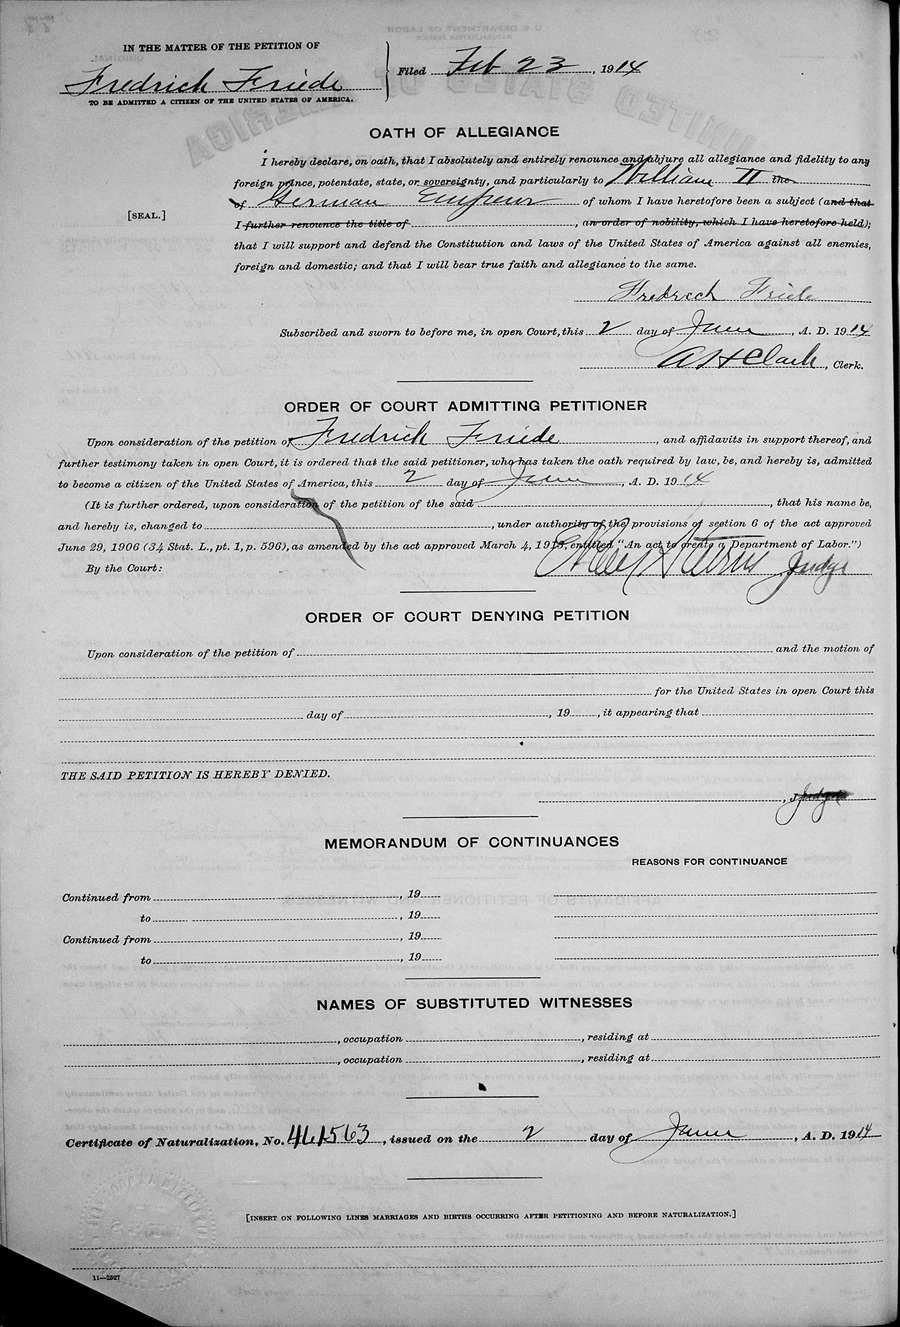 IN THE MATTER OF THE PETITION OF
Fredrich Friede
TO BE ADMITTED A CITIZEN OF THE UNITED STATES OF AMERICA.
Filed Feb 23, 1914
OATH OF ALLEGIANCE
I hereby declare, on oath, that I absolutely and entirely renounce and abjure all allegiance and fidelity to any
foreign prince, potentate, state, or sovereignty, and particularly to William II the
of German Emperor of whom I have heretofore been a subject (and that
[SEAL.]
I further renounce the title of , an order of nobility, which I have heretofore held);
that I will support and defend the Constitution and laws of the United States of America against all enemies,
foreign and domestic; and that I will bear true faith and allegiance to the same.
Fredrich Friede
Subscribed and sworn to before me, in open Court, this 2 day of June, A. D. 1914
A H Clark, Clerk.
ORDER OF COURT ADMITTING PETITIONER
Upon consideration of the petition of Fredrich Friede, and affidavits in support thereof, and
further testimony taken in open Court, it is ordered that the said petitioner, who has taken the oath required by law, be, and hereby is, admitted
to become a citizen of the United States of America, this 2 day of June, A. D. 1914
(It is further ordered, upon consideration of the petition of the said , that his name be,
and hereby is, changed to , under authority of the provisions of section 6 of the act approved
June 29, 1906 (34 Stat. L., pt. 1, p. 596), as amended by the act approved March 4, 1913, entitled "An act to create a Department of Labor.")
By the Court: Judge
ORDER OF COURT DENYING PETITION
Upon consideration of the petition of and the motion of
for the United States in open Court this
day of , 19 , it appearing that
THE SAID PETITION IS HEREBY DENIED.
, Judge
MEMORANDUM OF CONTINUANCES
REASONS FOR CONTINUANCE
Continued from , 19
to , 19
Continued from , 19
to , 19
NAMES OF SUBSTITUTED WITNESSES
, occupation , residing at
, occupation , residing at
Certificate of Naturalization, No. 461563, issued on the 2 day of June, A. D. 1914
[INSERT ON FOLLOWING LINES MARRIAGES AND BIRTHS OCCURRING AFTER PETITIONING AND BEFORE NATURALIZATION.]
11—2527